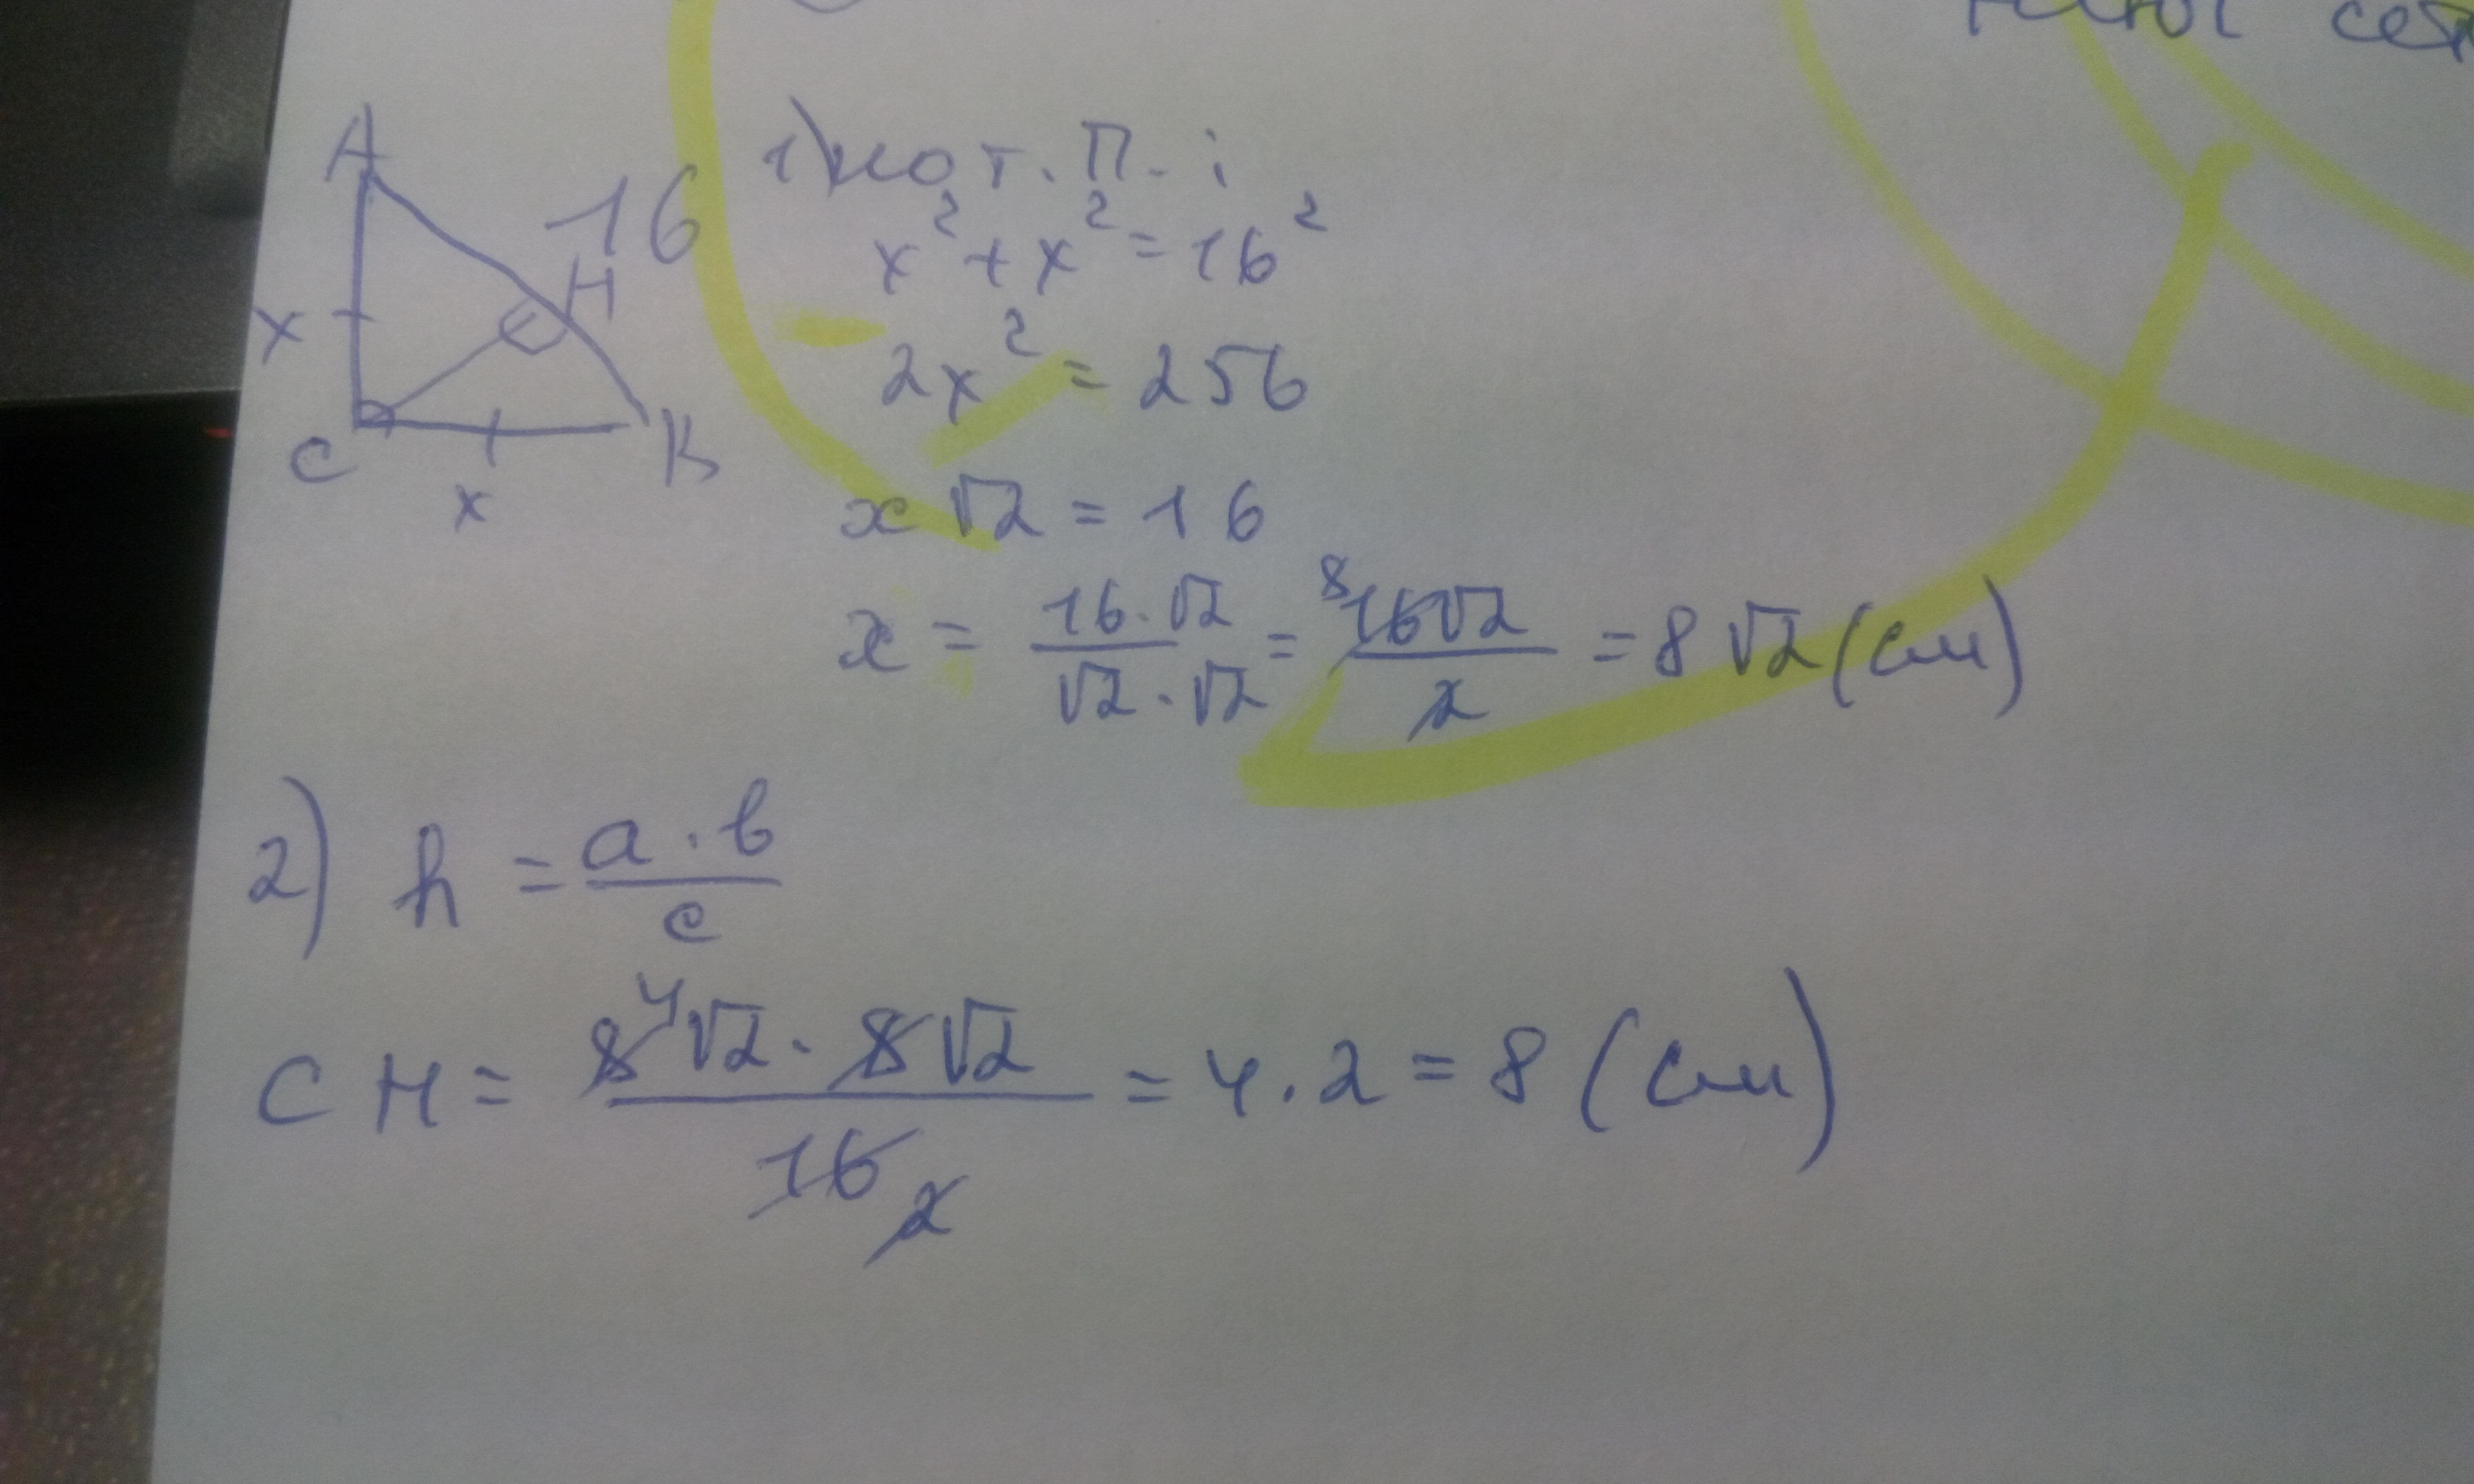 A
16
H
x
C
x
B
1) по т. П.:
x² + x² = 16²
2x² = 256
x√2 = 16
x = 16·√2 / √2·√2 = ⁸16√2 / 2 = 8√2 (см)
2) h = a·b / c
CH = 8⁴√2 · 8√2 / 16 2 = 4·2 = 8 (см)